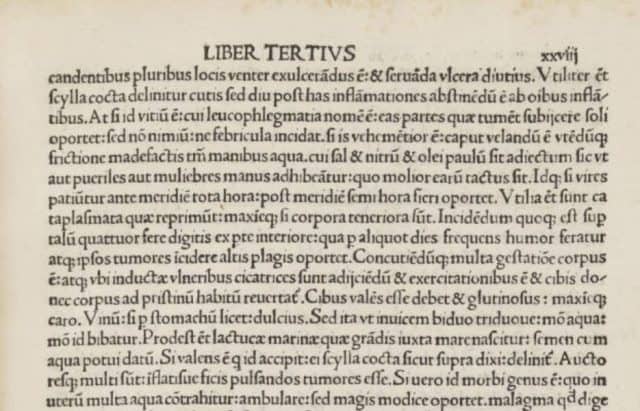 LIBER TERTIVS xxviij
candentibus pluribus locis venter exulcerãdus ẽ: & seruãda vlcera diutius. Vtiliter ẽt
scylla cocta delinitur cutis sed diu post has inflãmationes abstinẽdũ ẽ ab oibus inflã-
tibus. At si id vitiũ ẽ: cui leucophlegmatia nomẽ ẽ: eas partes quæ tumẽt subijcere soli
oportet: sed nõ nimiũ: ne febricula incidat. si is vehemẽtior ẽ: caput velandũ ẽ vtẽdũq;
frictione madefactis trñ manibus aqua. cui sal & nitrũ & olei paulũ sit adiectum sic vt
aut pueriles aut muliebres manus adhibeãtur: quo molior earũ tactus sit. Idq; si vires
patiũtur ante meridiẽ tota hora: post meridiẽ semi hora fieri oportet. Vtilia ẽt sunt ca
taplasmata quæ reprimũt: maxieq; si corpora teneriora sũt. Incidẽdum quoq; est sup
talũ quattuor fere digitis ex pte interiore: qua p aliquot dies frequens humor feratur
atq; ipsos tumores icidere altis plagis oportet. Concutiẽdũq; multa gestatiõe corpus
ẽ: atq; vbi inductæ vlneribus cicatrices sunt adijciẽdũ & exercitationibus ẽ & cibis do-
nec corpus ad pristinũ habitũ reuertat̃. Cibus valẽs esse debet & glutinosus: maxieq;
caro. Vinũ: si p stomachũ licet: dulcius. Sed ita vt inuicem biduo triduoue: mõ aqua:
mõ id bibatur. Prodest ẽt lactucæ marinæ quæ grãdis iuxta mare nascitur: semen cum
aqua potui datũ. Si valens ẽ q id accipit: ei scylla cocta sicut supra dixi: delinit̃. Aucto
resq; multi sũt: iflatis ficis pulsandos tumores esse. Si uero id morbi genus ẽ: quo in
uterũ multa aqua cõtrahitur: ambulare: sed magis modice oportet. malagma qđ dige